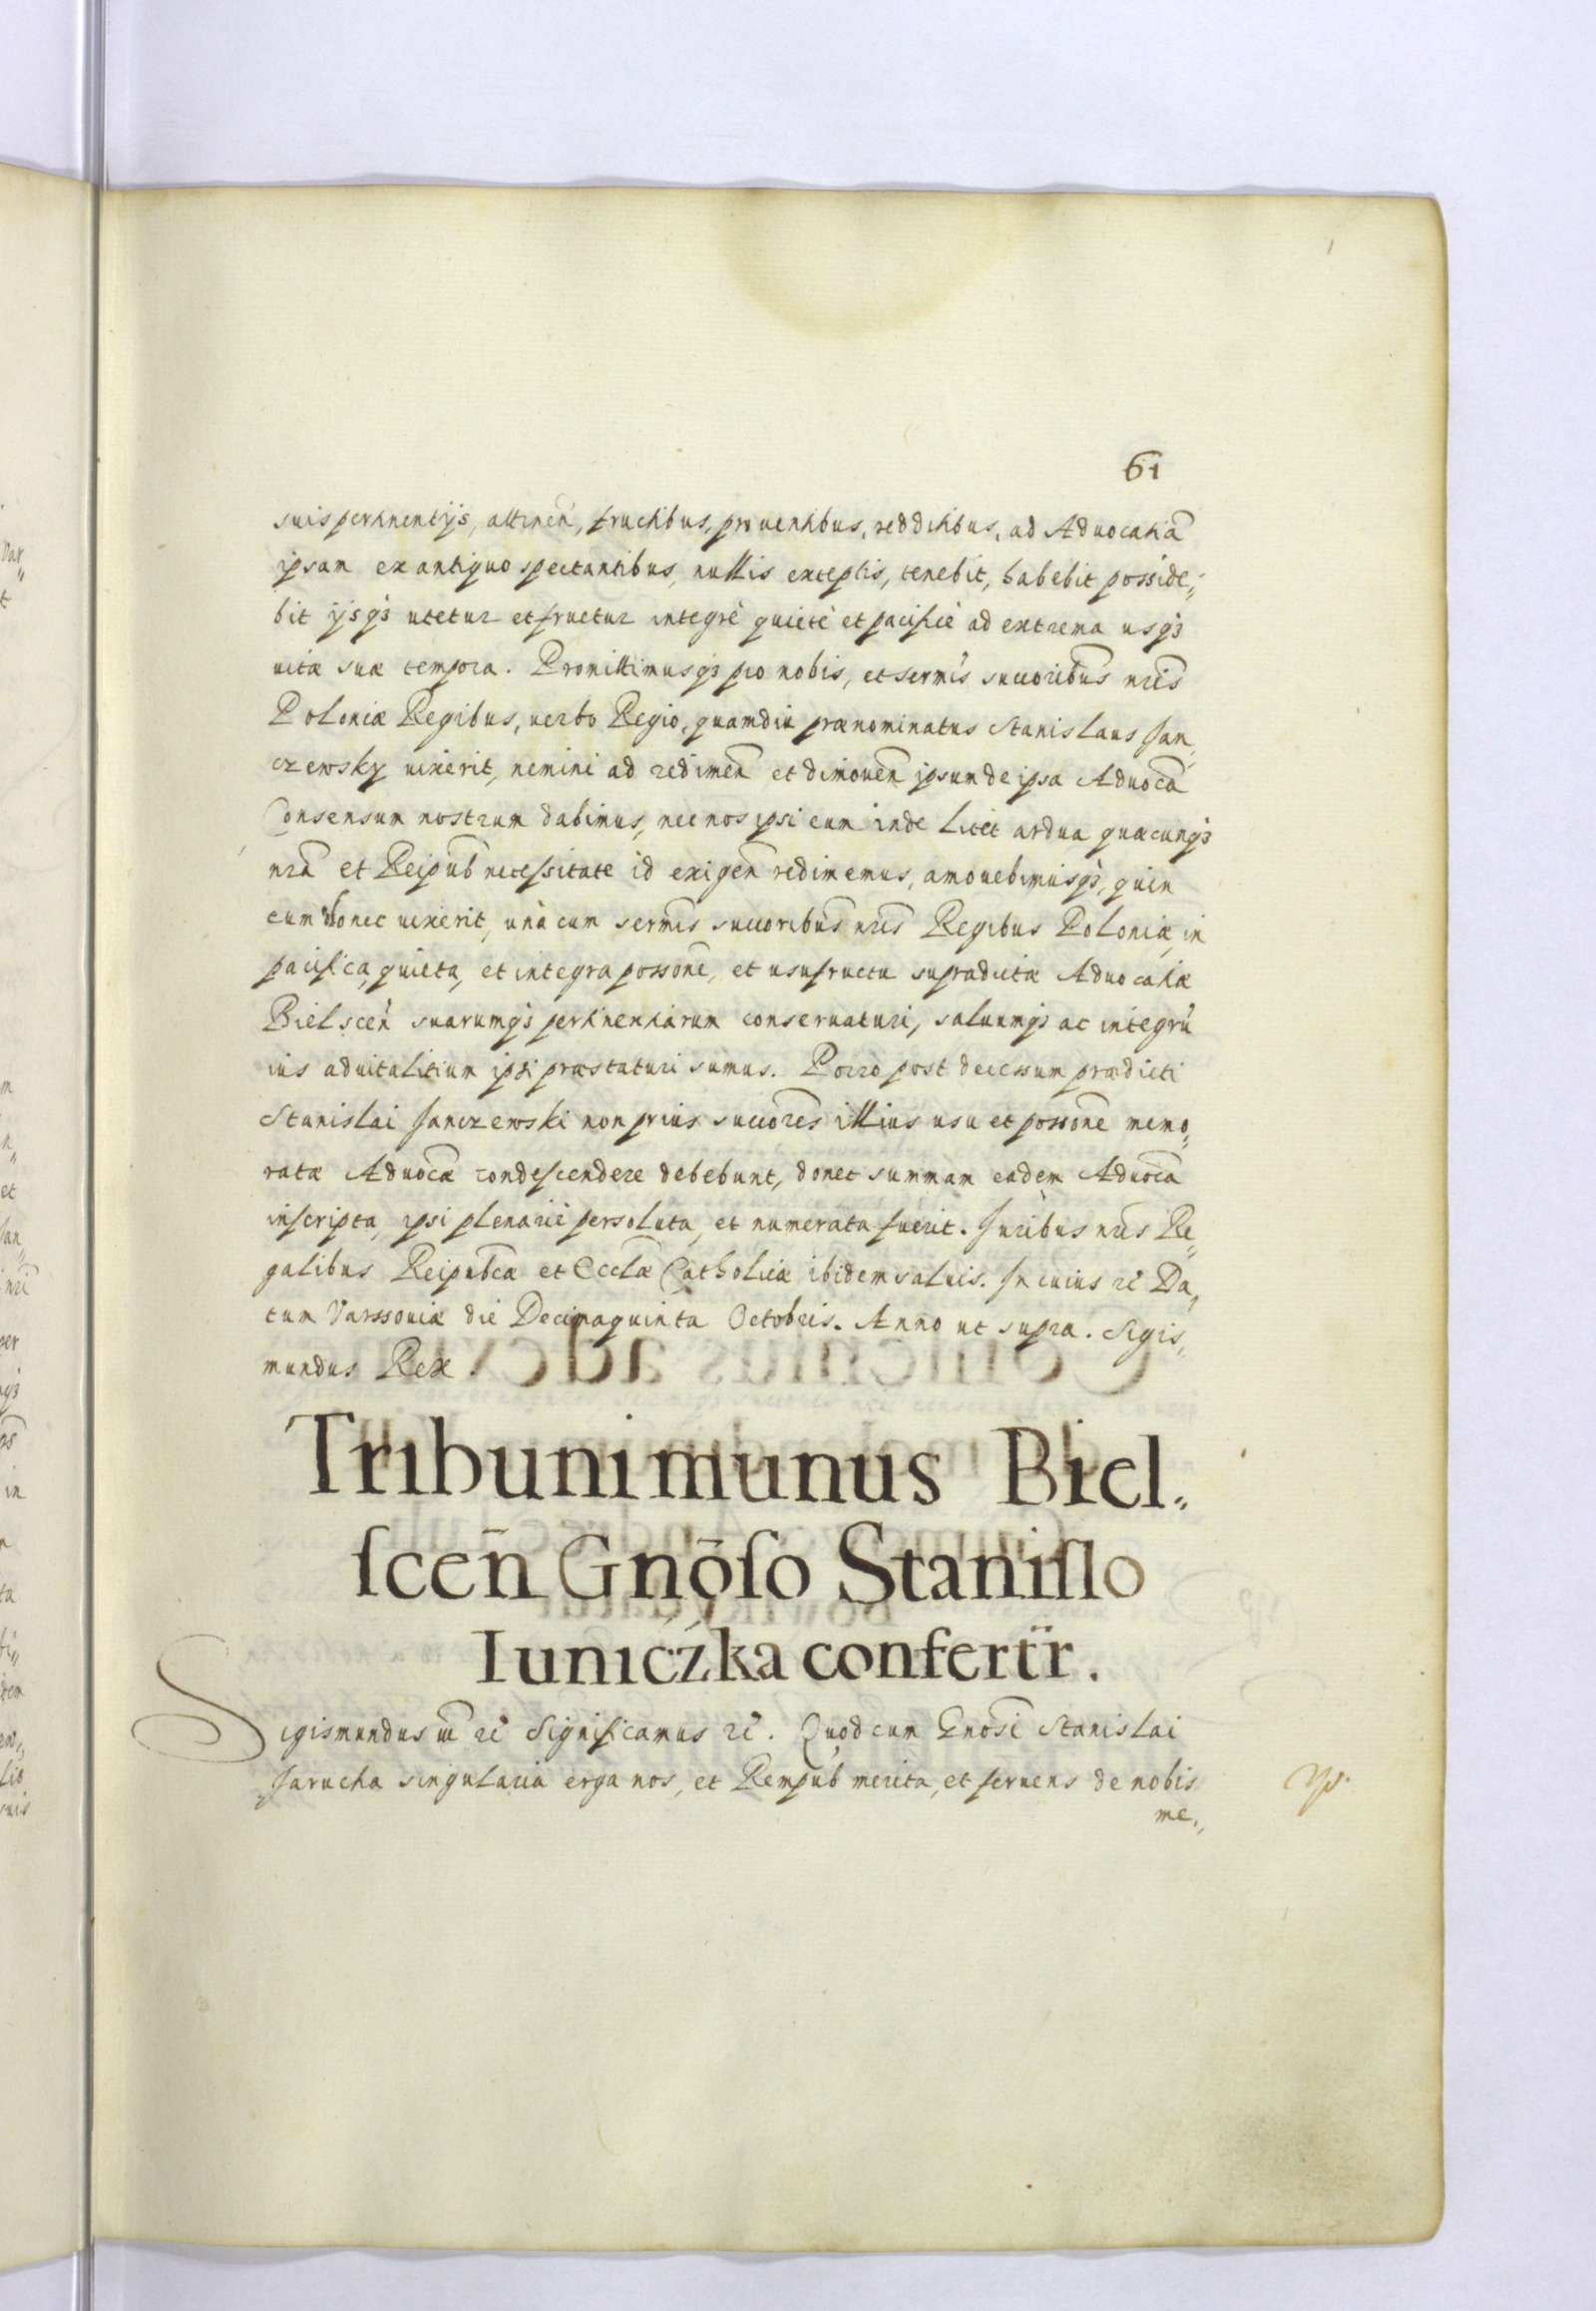 61
suis pertinentijs, attinen̄, fructibus, prouentibus, redditibus, ad Aduocatiā
ipsam ex antiquo spectantibus, nullis exceptis, tenebit, habebit posside„
bit ijsq́ꝫ utetur et fruetur integrè quietè et pacificè ad extrema usq́ꝫ
uitæ suæ tempora. Promittimusq́ꝫ pro nobis, et sermīs succoribus̄ nr̄is
Poloniæ Regibus, uerbo Regio, quamdiu prænominatus Stanislaus Jan„
czewsky uixerit, nemini ad redimen̄ et dimouen̄ ipsum de ipsa Aduocā
Consensum nostrum dabimus, nec nos ipsi eum inde licet ardua quacunq́ꝫ
nr̄ā et Reipub̄ necessitate id exigen̄ redimemus, amouebimusq́ꝫ, quin
eum donec uixerit, unà cum sermīs succoribus̄ nr̄is Regibus Poloniæ, in
pacifica, quieta, et integra possōne, et usufructu supradictæ Aduocatiæ
Bielscen̄ suarumq́ꝫ pertinentiarum conseruaturi, saluumq́ꝫ ac integrū
ius aduitalitium ipsi præstaturi sumus. Porrò post decessum prædicti
Stanislai Janczewski non prius succorēs illius usu et possōne memo„
ratæ Aduocǣ condescendere debebunt, donec summam eadem Aduocā
inscripta, ipsi plenariè persoluta, et numerata fuerit. Juribus nr̄is Re„
galibus Reipubcǣ et Ecclǣ Catholicæ ibidem saluis. In cuius rē Da„
tum Varssouiæ die Decimaquinta Octobris. Anno ut supra. Sigis„
mundus Rex.
Tribuni munus Biel„
scen̄ Gnōso Stanislo
Iunicźka confert̄r.
Sigismundus iii rē Significamus rē. Quod cum Gnosī Stanislai
Jarucha singularia erga nos, et Rempub̄ merita, et feruens de nobis
me„